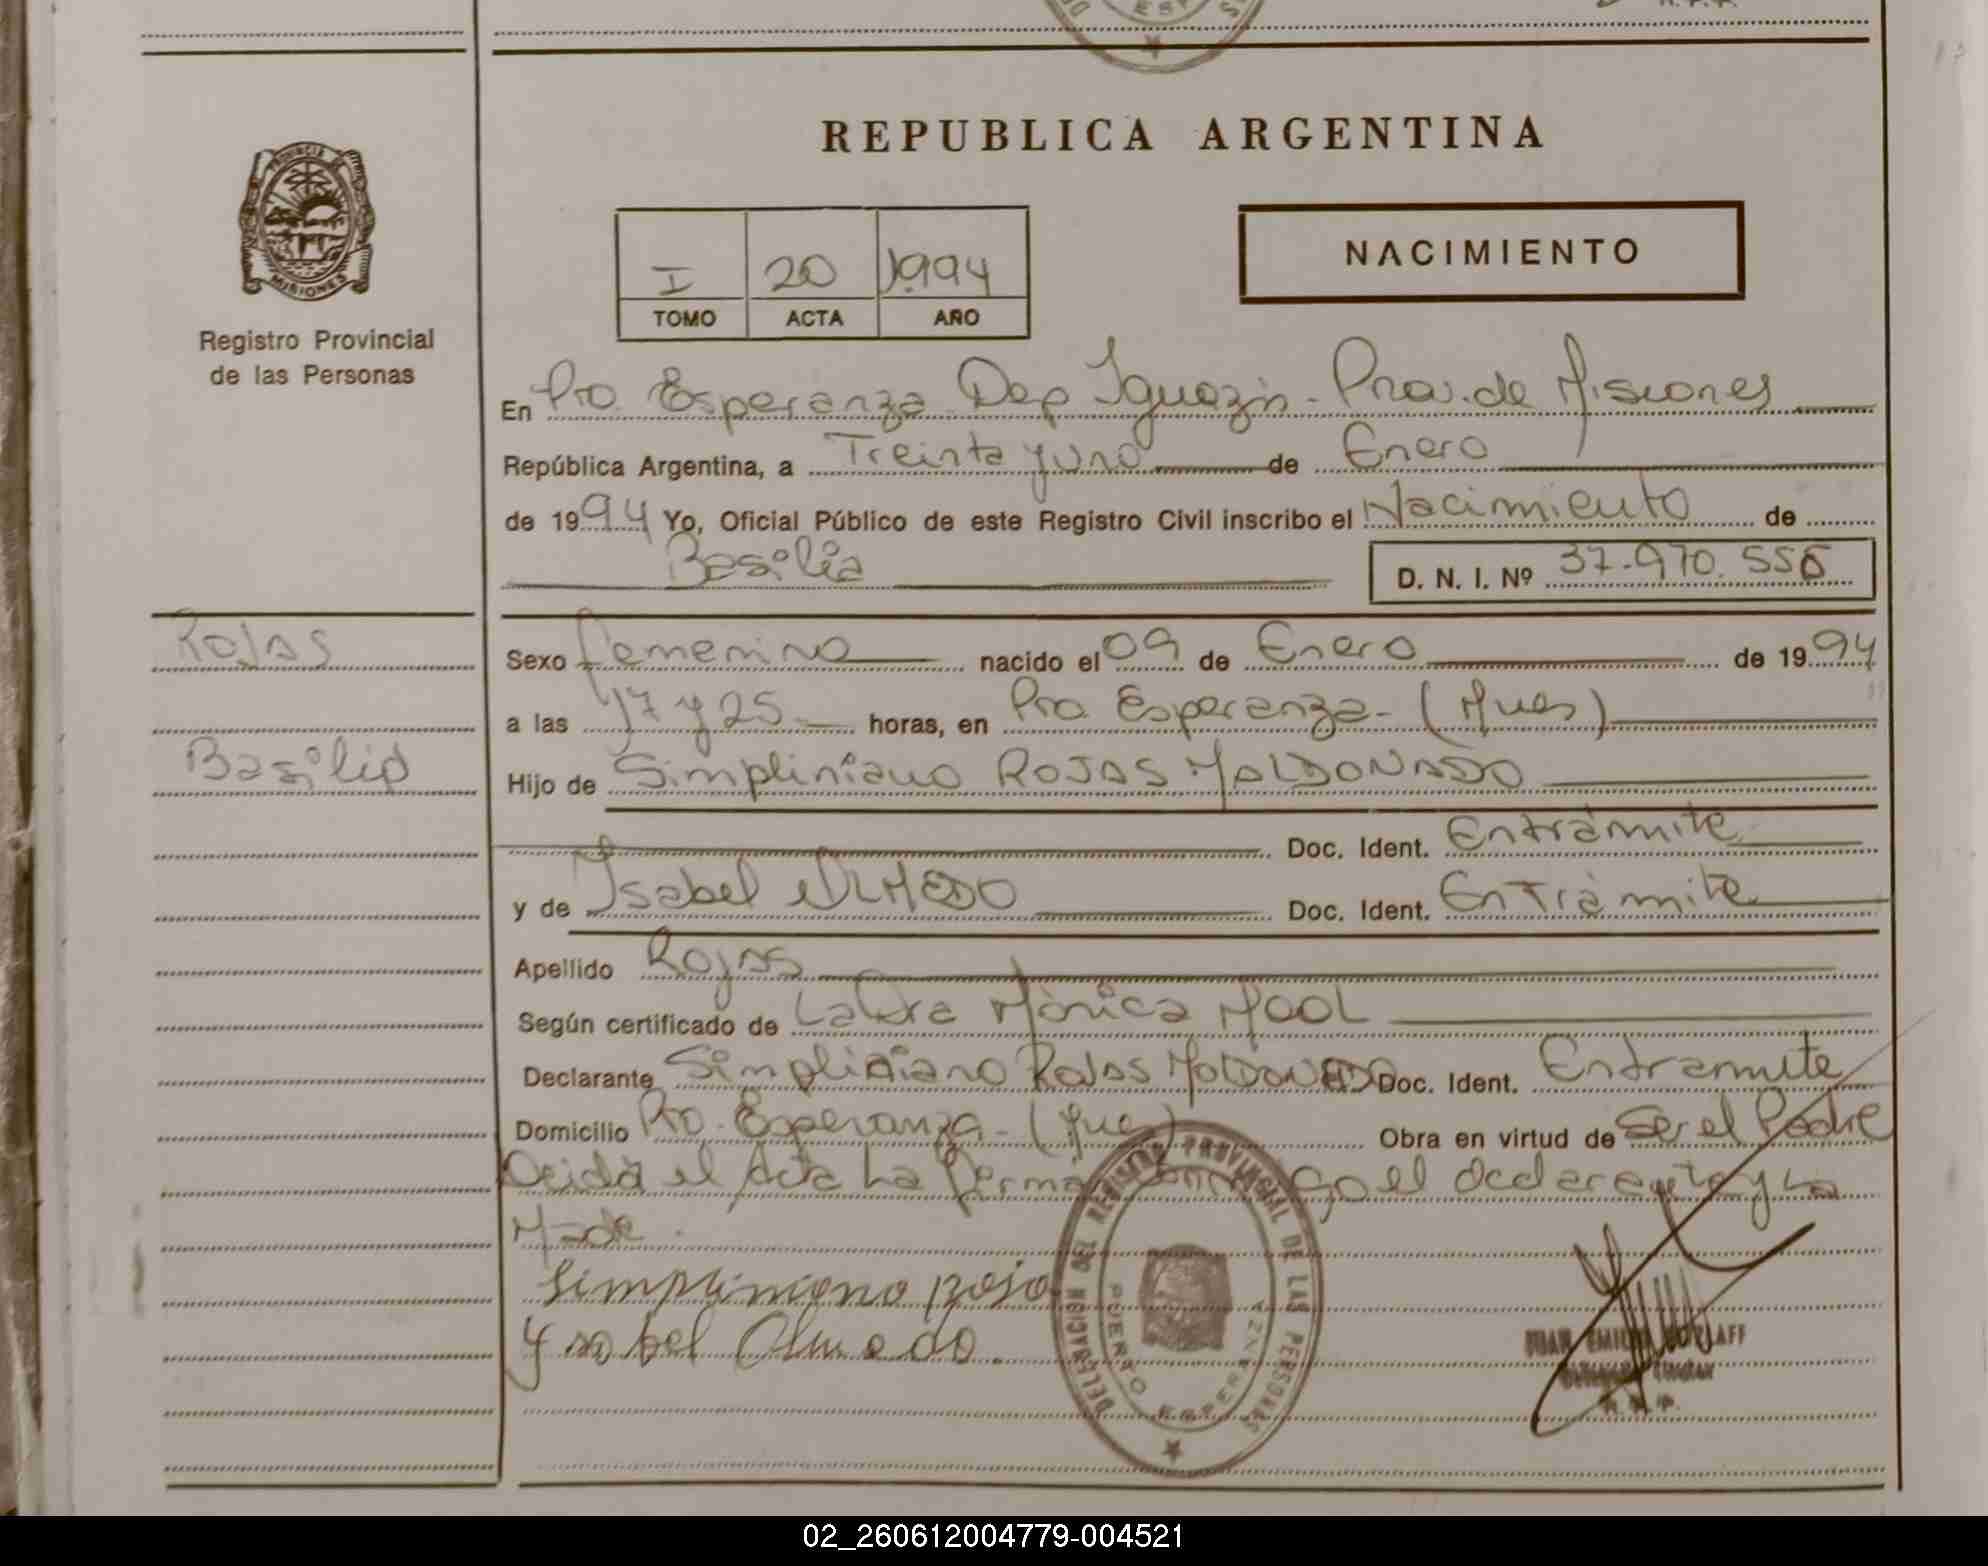 REPUBLICA ARGENTINA
PROVINCIA DE
MISIONES
Registro Provincial
de las Personas
I 20 1994
TOMO ACTA AÑO
NACIMIENTO
En Pto. Esperanza Dep Iguazú - Prov. de Misiones
República Argentina, a Treinta y uno de Enero
de 1994 Yo, Oficial Público de este Registro Civil inscribo el Nacimiento de
Basilia D. N. I. Nº 37.970.556
Rojas
Basilia
Sexo femenino nacido el 09 de Enero de 1994
a las 17 y 25 horas, en Pto. Esperanza - (Mnes)
Hijo de Simpliniano ROJAS MALDONADO
Doc. Ident. En trámite
y de Isabel OLMEDO Doc. Ident. En Trámite
Apellido Rojas
Según certificado de La Dra Mónica MOOL
Declarante Simpliniano Rojas MALDONADO Doc. Ident. En tramite
Domicilio Pto. Esperanza - (Mnes) Obra en virtud de Ser el Padre
Leida el Acta La firma conmigo el declarante y La
Madre.
Simpliniano Rojas
Ysabel Olmedo.
DELEGACION DEL REGISTRO PROVINCIAL DE LAS PERSONAS
PUERTO ESPERANZA
JUAN EMILIO
Delegado Titular
R.P.P.
02_260612004779-004521